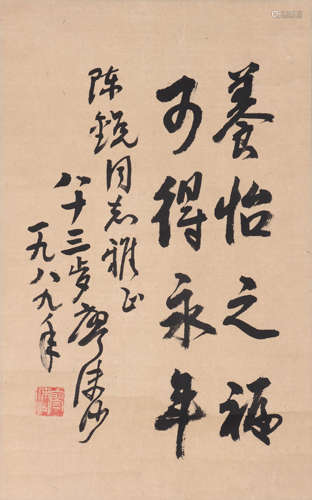 養怡之福
可得永年
陈锐同志雅正
八十三岁廖沫沙
一九八九年